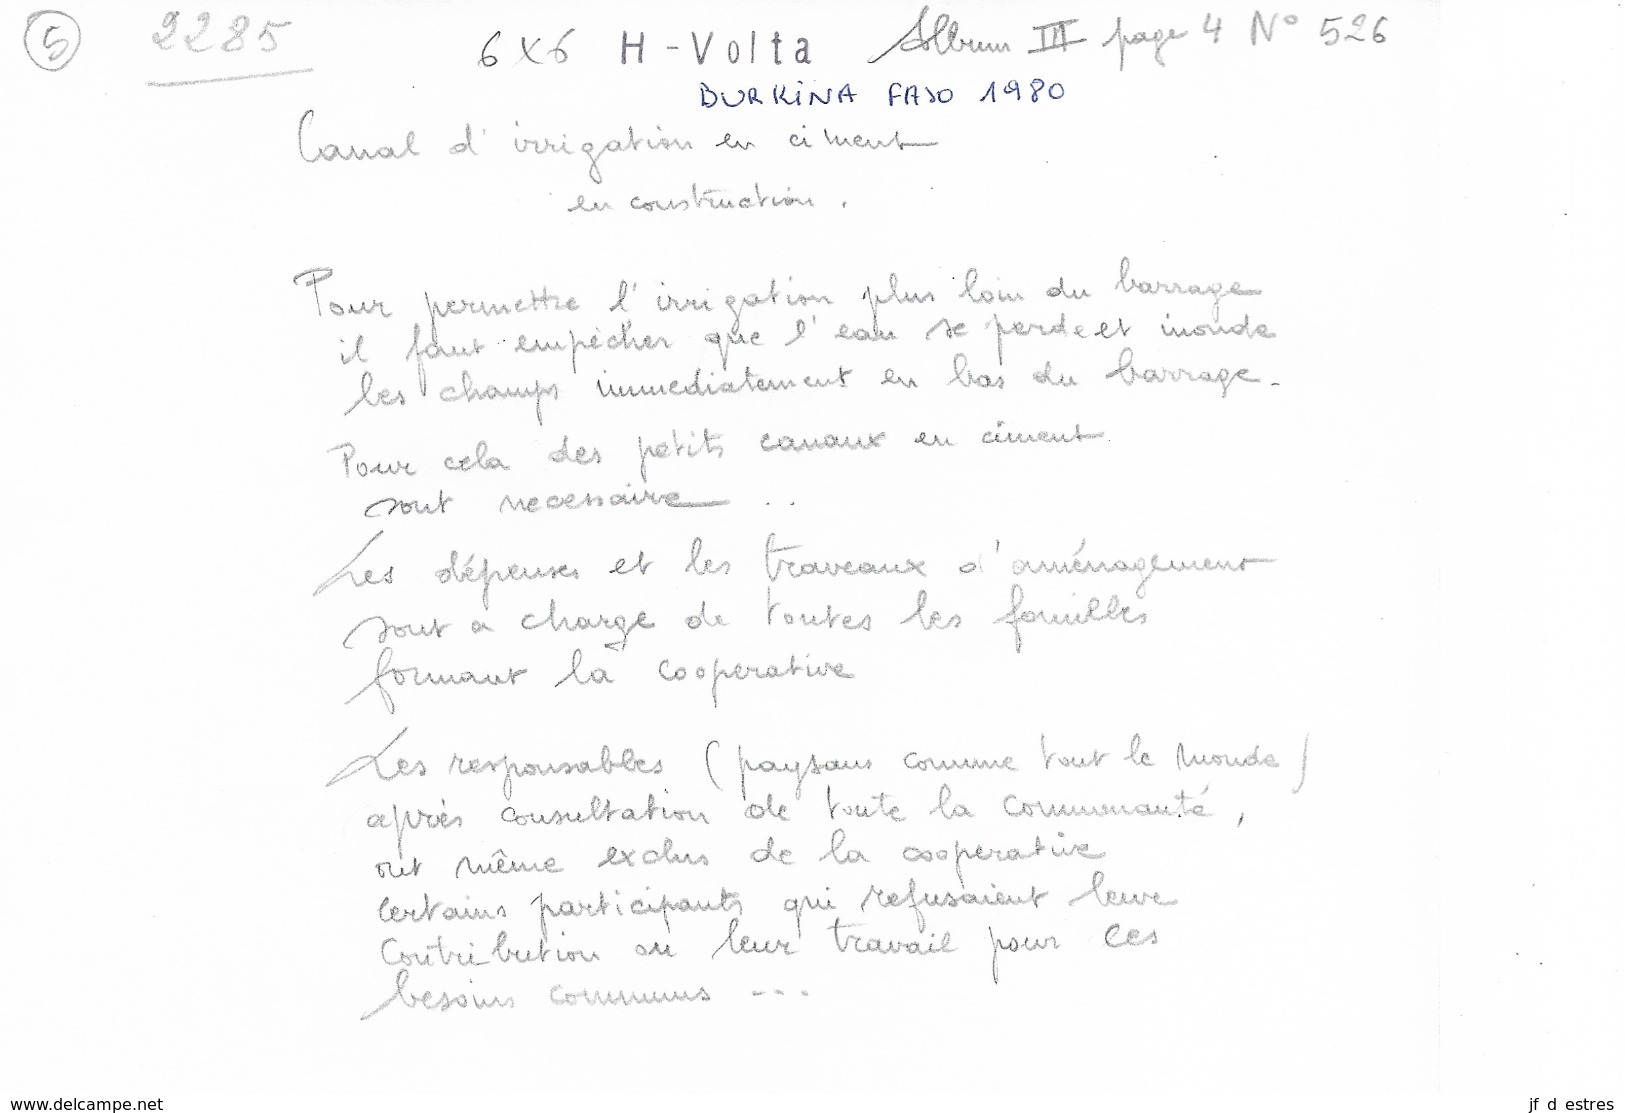 5 2285 6x6 H-Volta Album III page 4 N° 526
BURKINA FASO 1980
Canal d'irrigation en ciment
en construction.
Pour permettre l'irrigation plus loin du barrage
il faut empêcher que l'eau se perde et inonde
les champs immediatement en bas du barrage -
Pour cela des petits canaux en ciment
sont necessaire ..
Les dépenses et les traveaux d'aménagement
sont a charge de toutes les familles
formant la cooperative
Les responsables (paysans comme tout le monde)
après consultation de toute la communauté,
ont même exclus de la cooperative
certains participants qui refusaient leur
contribution ou leur travail pour ces
besoins communs ---
www.delcampe.net
jf d estres